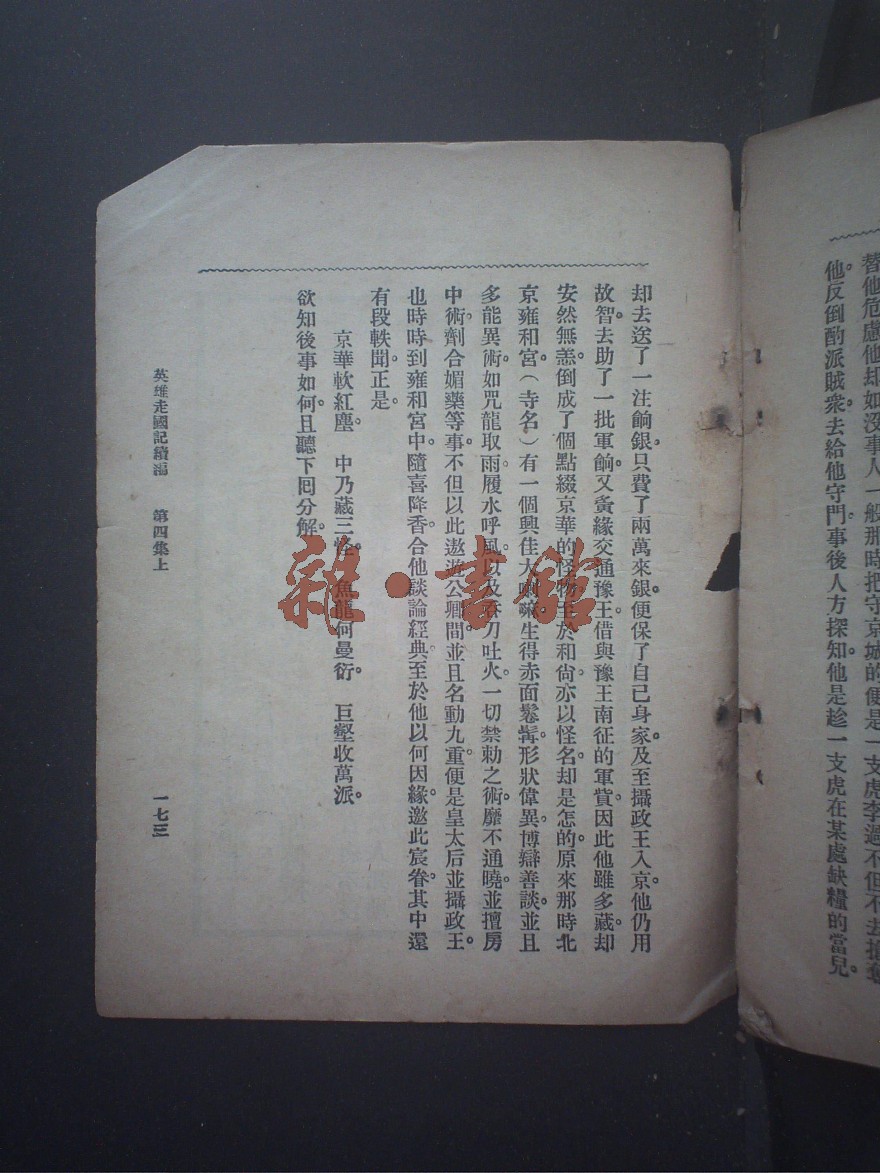 替他危慮他却如沒事人一般那時把守京城的便是一支虎李過不但不去搶奪
他。反倒酌派賊衆。去給他守門。事後人方探知他是趁一支虎在某處缺糧的當兒。
却去送了一注餉銀。只費了兩萬來銀。便保了自已身家。及至攝政王入京。他仍用
故智。去助了一批軍餉。又夤緣交通豫王。借與豫王南征的軍貲。因此他雖多藏却
安然無恙。倒成了個點綴京華的怪物。至於和尙。亦以怪名。却是怎的。原來那時北
京雍和宮(寺名)有一個興佳大喇嘛。生得赤面鬆髯。形狀偉異。博辯善談。並且
多能異術。如咒龍取雨。履水呼風。以及吞刀吐火。一切禁勅之術。靡不通曉。並擅房
中術。劑合媚藥等事。不但以此遨遊公卿間。並且名動九重。便是皇太后並攝政王。
也時時到雍和宮中。隨喜降香。合他談論經典。至於他以何因緣。邀此宸眷。其中還
有段軼聞。正是。
京華軟紅塵。 中乃藏三怪。 魚龍何曼衍。 巨壑收萬派。
欲知後事如何。且聽下囘分解。
英雄走國記續編 第四集上 一七三
雜·書館